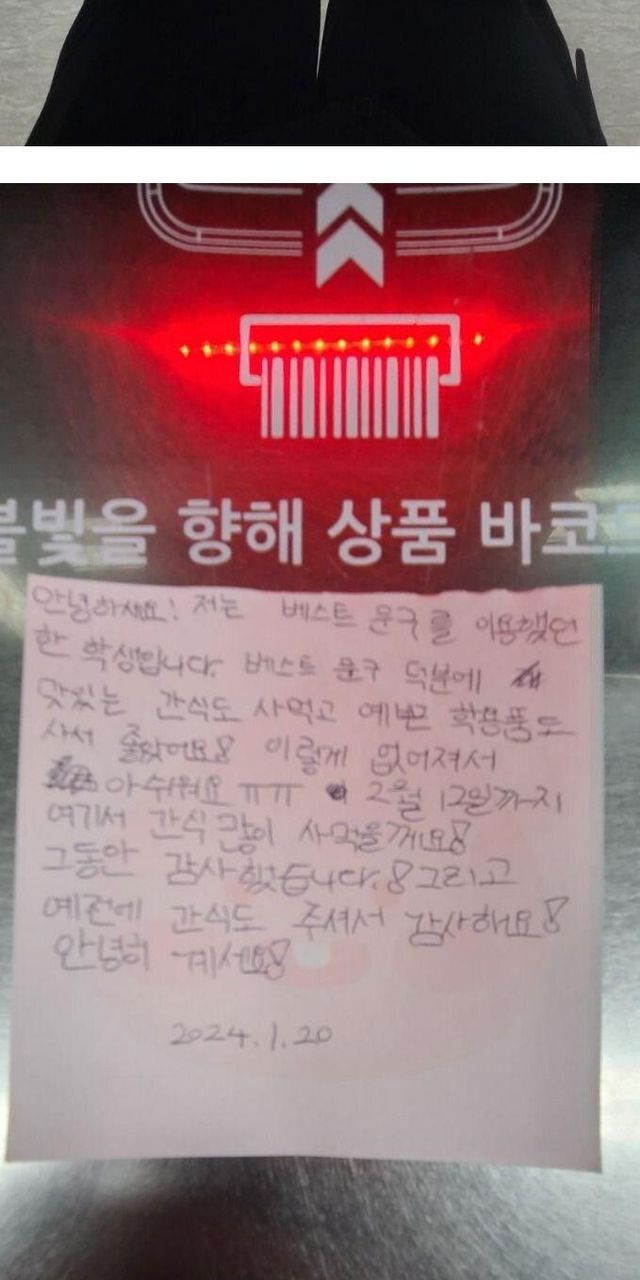 불빛을 향해 상품 바코드
안녕하세요! 저는 베스트 문구를 이용했던
한 학생입니다. 베스트 문구 덕분에
맛있는 간식도 사먹고 예쁜 학용품도
사서 좋았어요! 이렇게 없어져서
아쉬워요 ㅠㅠ 2월 12일까지
여기서 간식 많이 사먹을게요!
그동안 감사했습니다.! 그리고
예전에 간식도 주셔서 감사해요!
안녕히 계세요!
2024.1.20